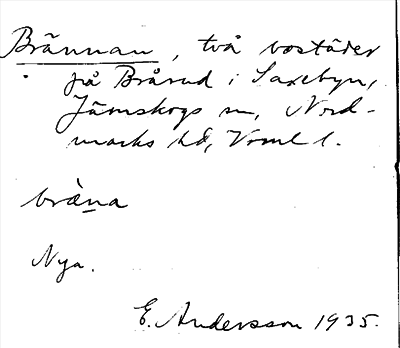 Brännan, två bostäder
på Brårud i Saxebyn,
Järnskogs sn, Nord-
marks hd, Vrml l.
bràna
Nya.
E. Andersson 1935.